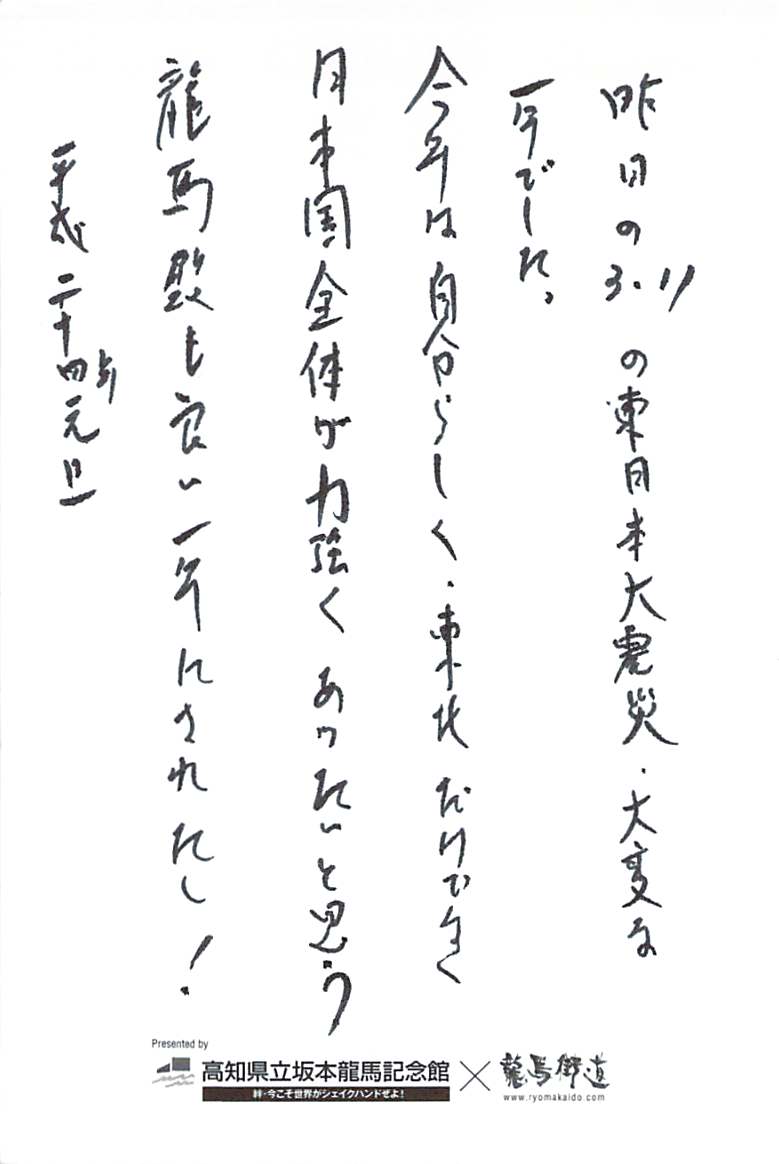 昨日の3.11の東日本大震災・大変な
一年でした。
今年は自分らしく・東北だけでなく
日本国全体が力強くありたいと思う
龍馬殿も良い一年にされたし!
平成二十四年元旦
Presented by
高知県立坂本龍馬記念館×龍馬街道
絆・今こそ世界がシェイクハンドせよ!
www.ryomakaido.com